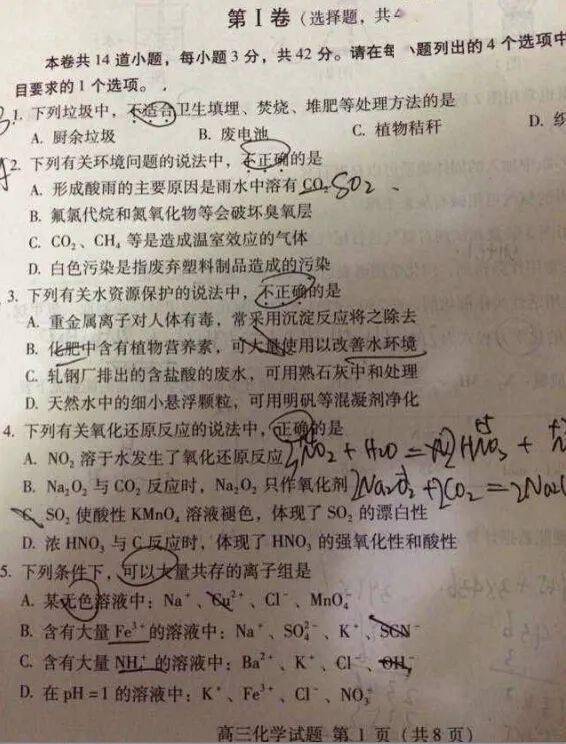 第Ⅰ卷（选择题，共4
本卷共14道小题，每小题3分，共42分。请在每 题列出的4个选项中
目要求的1个选项。
1. 下列垃圾中，不适合卫生填埋、焚烧、堆肥等处理方法的是
A. 厨余垃圾 B. 废电池 C. 植物秸秆 D. 织
2. 下列有关环境问题的说法中，不正确的是
A. 形成酸雨的主要原因是雨水中溶有CO₂ SO₂
B. 氟氯代烷和氮氧化物等会破坏臭氧层
C. CO₂、CH₄等是造成温室效应的气体
D. 白色污染是指废弃塑料制品造成的污染
3. 下列有关水资源保护的说法中，不正确的是
A. 重金属离子对人体有毒，常采用沉淀反应将之除去
B. 化肥中含有植物营养素，可大量使用以改善水环境
C. 轧钢厂排出的含盐酸的废水，可用熟石灰中和处理
D. 天然水中的细小悬浮颗粒，可用明矾等混凝剂净化
4. 下列有关氧化还原反应的说法中，正确的是
A. NO₂溶于水发生了氧化还原反应 3NO₂ + H₂O = 2HNO₃ +
B. Na₂O₂与CO₂反应时，Na₂O₂只作氧化剂 2Na₂O₂ + 2CO₂ = 2Na₂
C. SO₂使酸性KMnO₄溶液褪色，体现了SO₂的漂白性
D. 浓HNO₃与C反应时，体现了HNO₃的强氧化性和酸性
5. 下列条件下，可以大量共存的离子组是
A. 某无色溶液中：Na⁺、Cu²⁺、Cl⁻、MnO₄⁻
B. 含有大量Fe³⁺的溶液中：Na⁺、SO₄²⁻、K⁺、SCN⁻
C. 含有大量NH₄⁺的溶液中：Ba²⁺、K⁺、Cl⁻、OH⁻
D. 在pH=1的溶液中：K⁺、Fe³⁺、Cl⁻、NO₃⁻
高三化学试题 第1页（共8页）